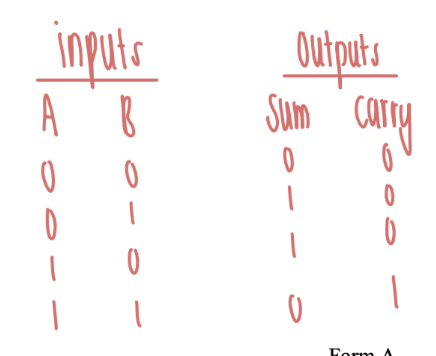 inputs outputs
A B Sum Carry
0 0 0 0
0 1 1 0
1 0 1 0
1 1 0 1
Form A